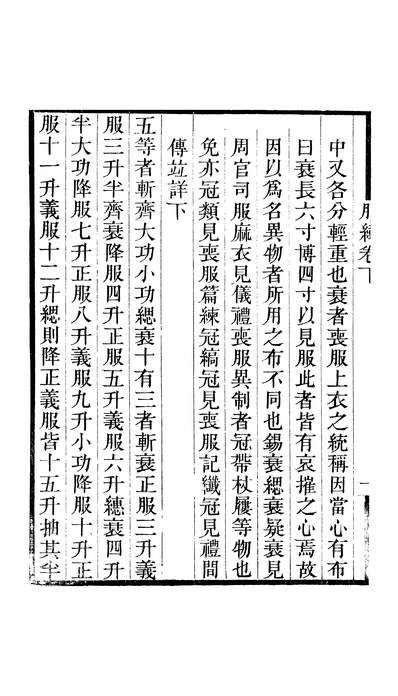 服經卷下
一
中又各分輕重也衰者喪服上衣之統稱因當心有布
曰衰長六寸博四寸以見服此者皆有哀摧之心焉故
因以爲名異物者所用之布不同也錫衰緦衰疑衰見
周官司服麻衣見儀禮喪服異制者冠帶杖屨等物也
免亦冠類見喪服篇練冠縞冠見喪服記纖冠見禮間
傳竝詳下
五等者斬齊大功小功緦衰十有三者斬衰正服三升義
服三升半齊衰降服四升正服五升義服六升繐衰四升
半大功降服七升正服八升義服九升小功降服十升正
服十一升義服十二升緦則降正義服皆十五升抽其半